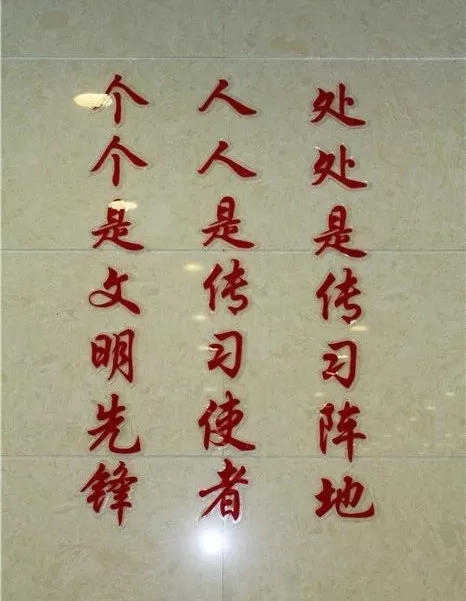 处处是传习阵地
人人是传习使者
个个是文明先锋